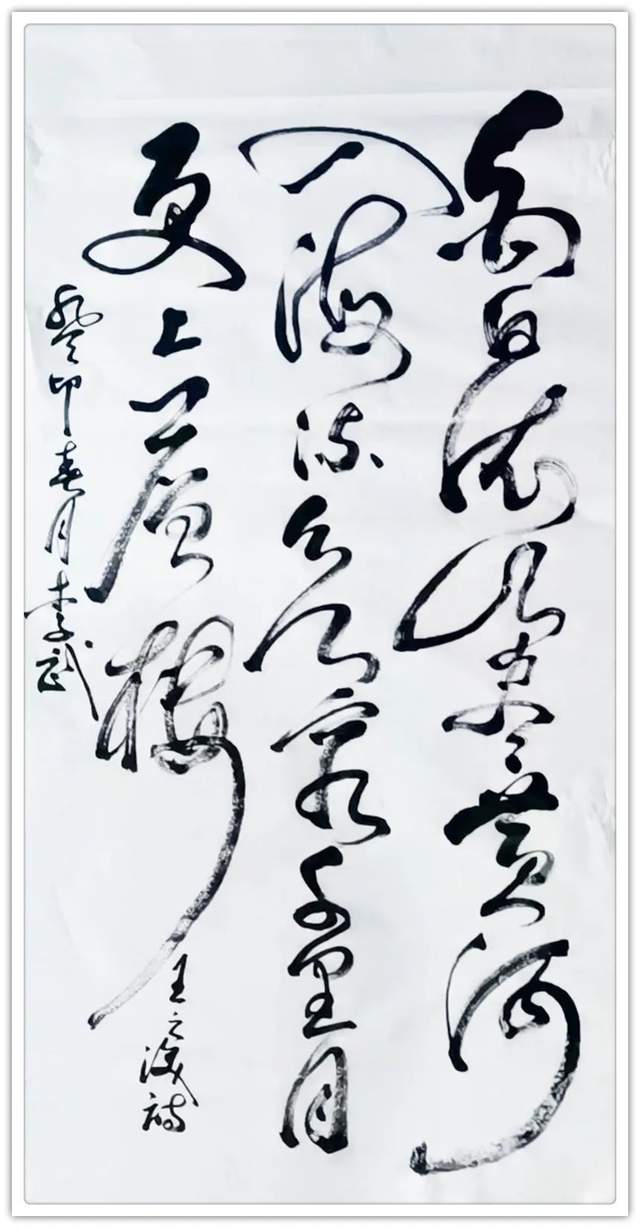 白日依山盡黄河
入海流欲窮千里目
更上一層樓
王之涣詩
癸卯春月李武